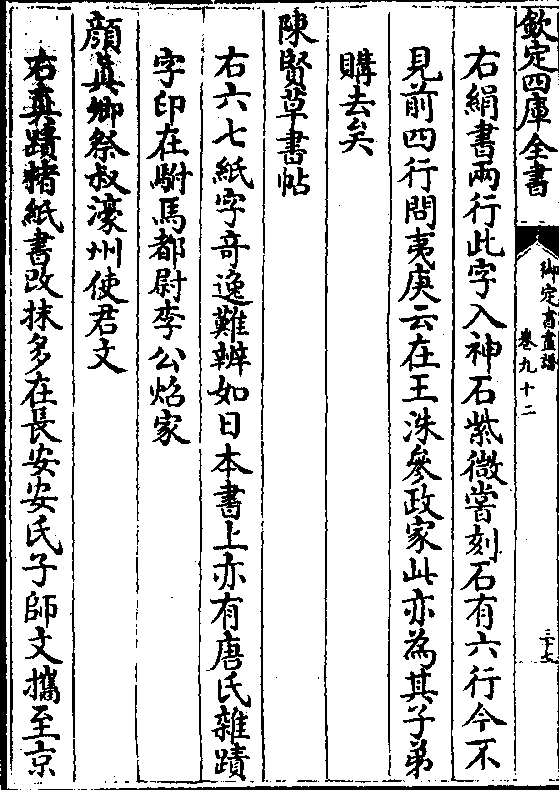 欽定四庫全書
御定書畫譜
卷九十二
三十七
右絹書兩行此字入神石紫微嘗刻石有六行今不
見前四行問夷庚云在王洙參政家此亦為其子弟
購去矣
陳賢草書帖
右六七紙字奇逸難辨如日本書上亦有唐氏雜蹟
字印在駙馬都尉李公炤家
顔真卿祭叔濠州使君文
右真蹟楮紙書改抹多在長安安氏子師文攜至京